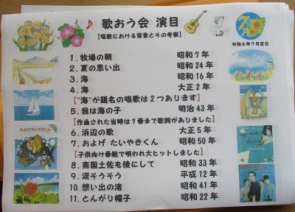 歌おう会 演目
【唱歌における背景とその考察】
令和4年7月吉日
1. 牧場の朝 昭和7年
2. 夏の思い出 昭和24年
3. 海 昭和16年
4. 海 大正2年
【"海"が題名の唱歌は2つあります】
5. 我は海の子 明治43年
【作曲された当時は7番まで歌詞がありました】
6. 浜辺の歌 大正5年
7. およげ たいやきくん 昭和50年
【子供向け番組で唄われ大ヒットしました】
8. 南国土佐を後にして 昭和33年
9. 涙そうそう 平成12年
10. 想い出の渚 昭和41年
11. とんがり帽子 昭和22年